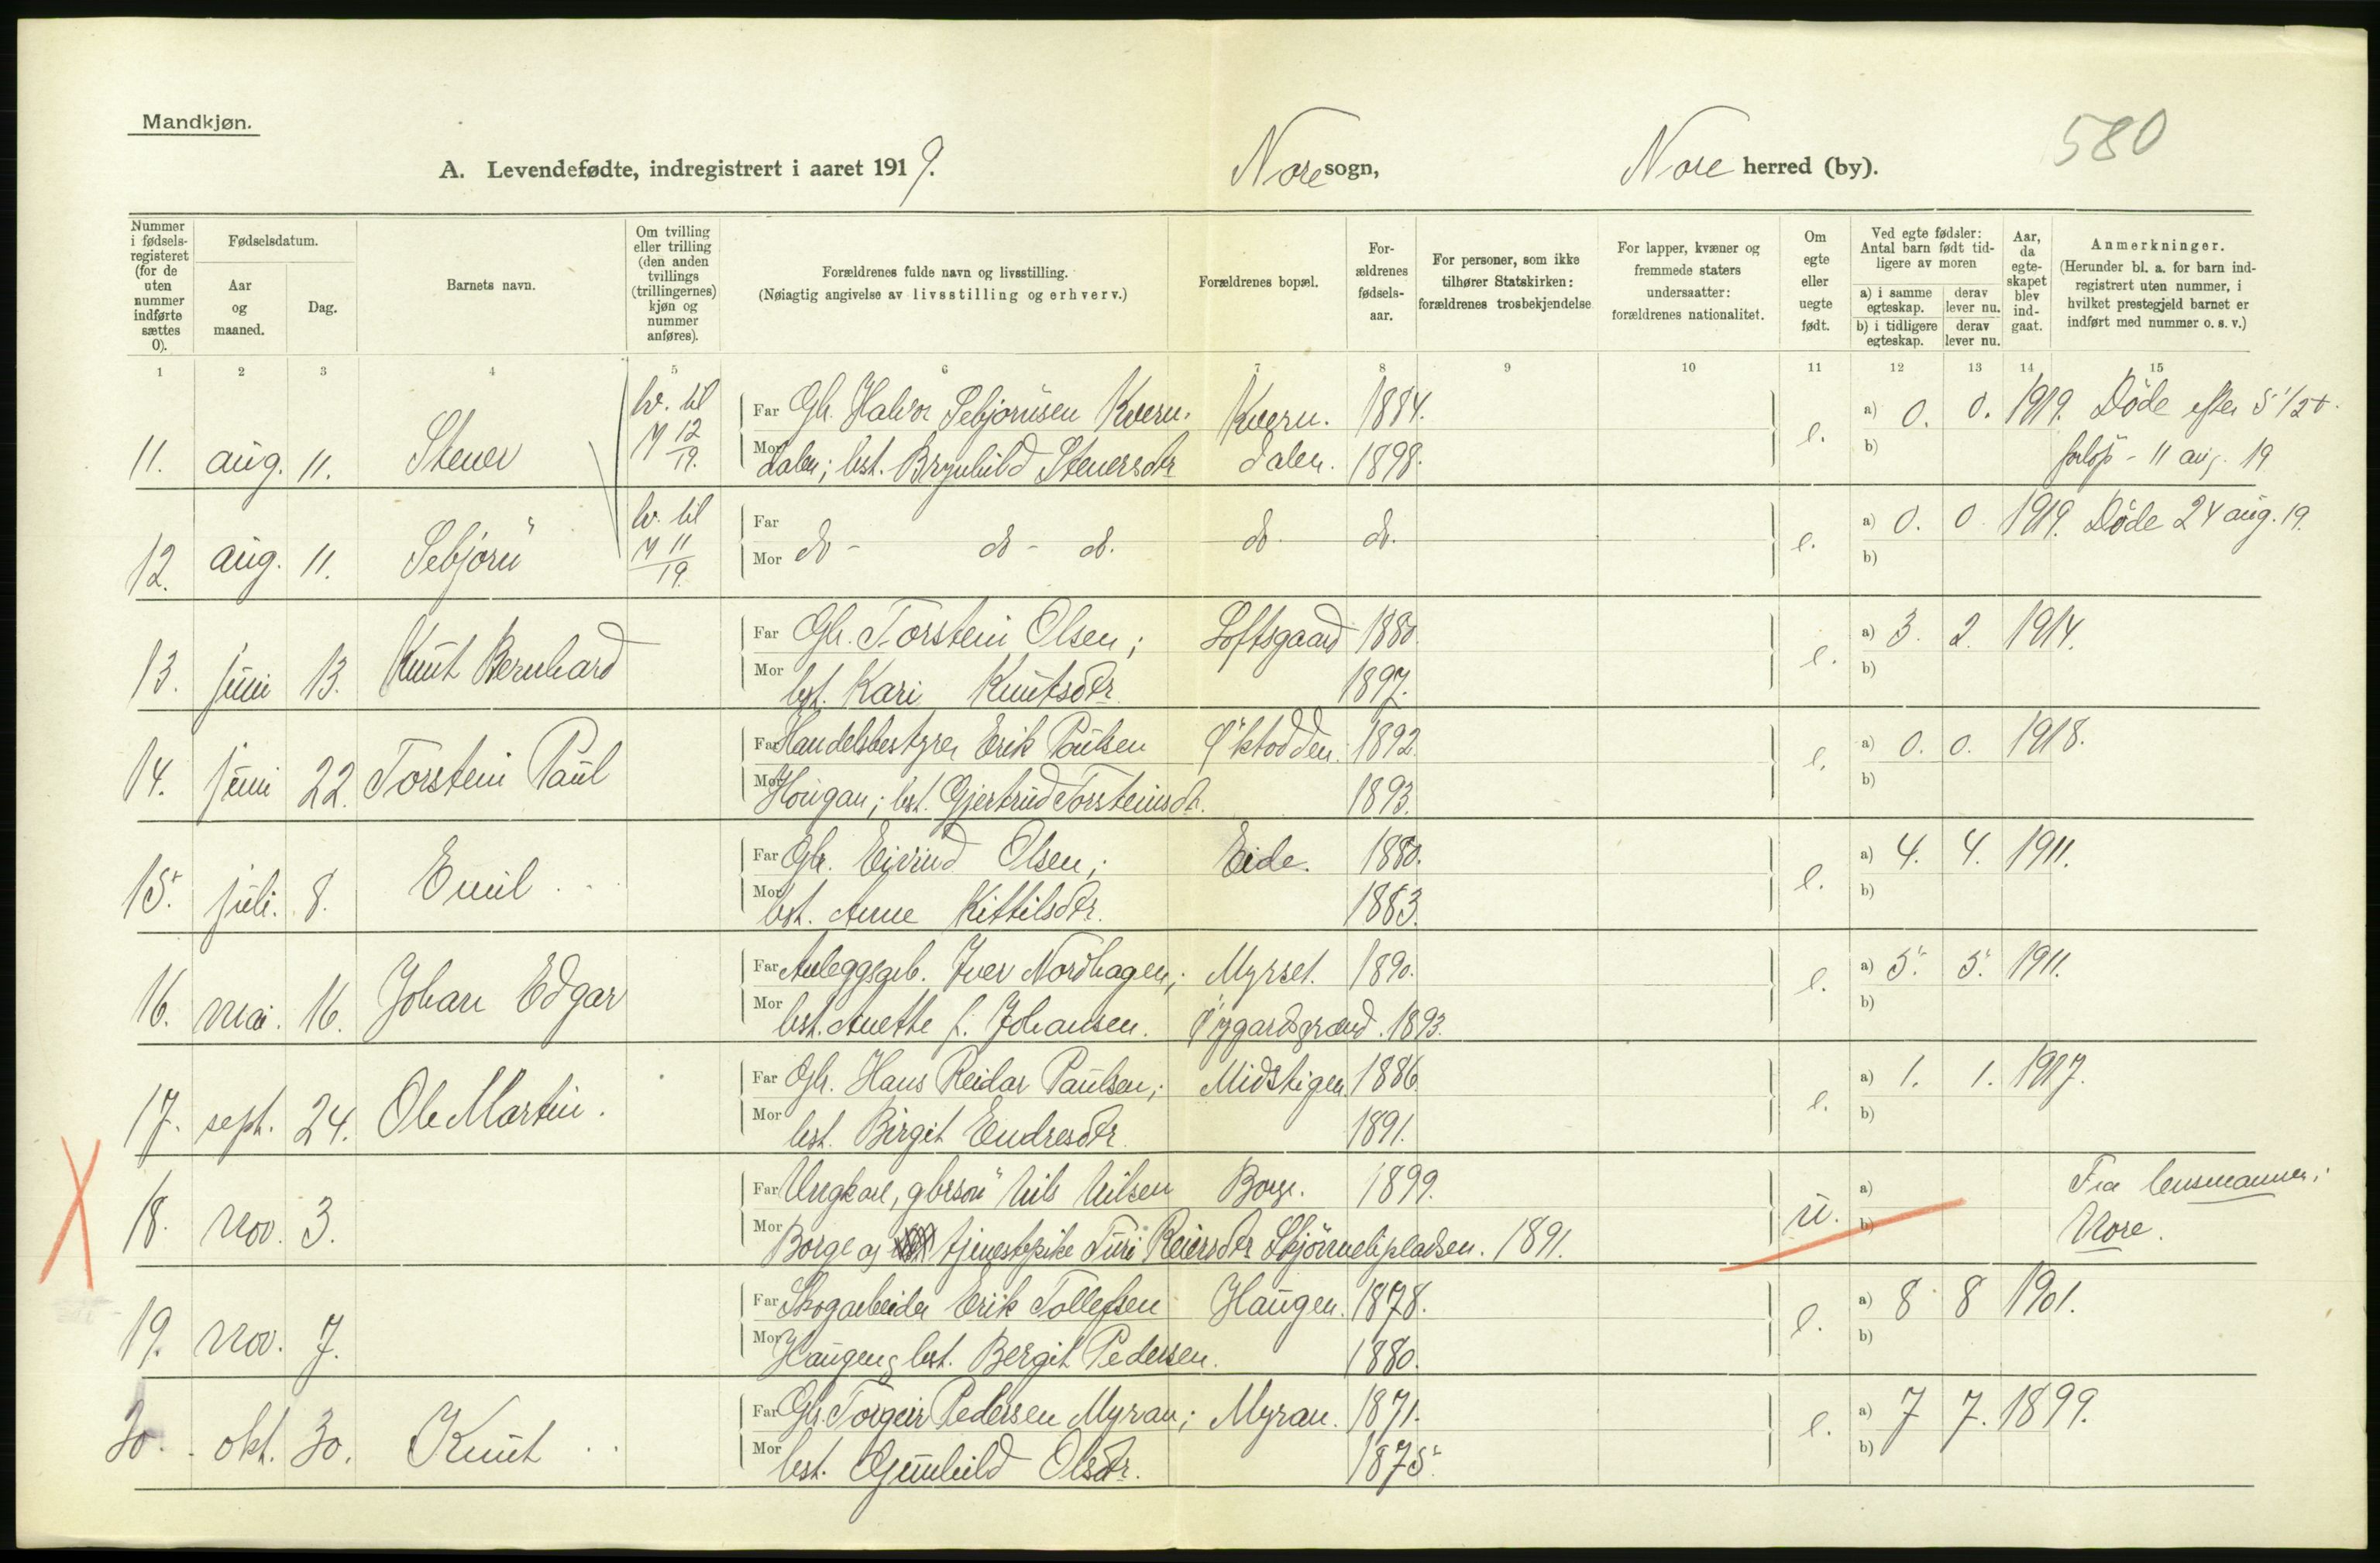 Mandkjøn.
580
A. Levendefødte, indregistrert i aaret 1919. Nore sogn, Nore herred (by).
Nummer i fødselsregisteret (for de uten nummer indførte sættes 0).
Fødselsdatum.
Aar og maaned.
Dag.
Barnets navn.
Om tvilling eller trilling (den anden tvillings (trillingernes) kjøn og nummer anføres).
Forældrenes fulde navn og livsstilling.
(Nøiagtig angivelse av livsstilling og erhverv.)
Forældrenes bopæl.
Forældrenes fødselsaar.
For personer, som ikke tilhører Statskirken: forældrenes trosbekjendelse
For lapper, kvæner og fremmede staters undersaatter: forældrenes nationalitet.
Om egte eller uegte født.
Ved egte fødsler: Antal barn født tidligere av moren
a) i samme egteskap. derav lever nu.
b) i tidligere egteskap. derav lever nu.
Aar, da egteskapet blev indgaat.
Anmerkninger.
(Herunder bl. a. for barn indregistrert uten nummer, i hvilket prestegjeld barnet er indført med nummer o. s. v.)
1 2 3 4 5 6 7 8 9 10 11 12 13 14 15
tv. til Far Gbr. Halvor Sebjørnsen Kvern. Kvern. 1884. a) 0. 0. 1919. Døde efter 5 1/2 t.
11. aug. 11. Stener M 12/19. Mor dalen; hst. Brynhild Stenersdtr dalen. 1898. e. b) forløp - 11 aug. 19
tv. til Far a) 0. 0 1919. Døde 24 aug. 19.
12. aug. 11. Sebjørn M 11/19. Mor do - do - do. do do. e. b)
Far Gbr. Torstein Olsen; Loftsgaard 1880. a) 3. 2. 1914.
13. juni 13. Knut Bernhard Mor hst. Kari Knutsdtr 1897. e. b)
Far Handelsbestyrer Erik Paulsen Øktodden. 1892. a) 0. 0. 1918.
14. juni 22. Torstein Paul Mor Hougan; hst. Gjertrud Torsteinsdtr. 1893. e. b)
Far Gbr. Eivind Olsen; Eide. 1880. a) 4. 4. 1911.
15. juli. 8. Emil Mor hst. Anne Kittilsdtr. 1883. e. b)
Far Anleggsarb. Iver Nordhagen; Myrset. 1890. a) 5. 5. 1911.
16. mai. 16. Johan Edgar Mor hst. Anette f. Johansen. Øygardsgrænd. 1893. e. b)
Far Gbr. Hans Reidar Paulsen; Midstigen. 1886. a) 1. 1. 1917.
17. sept. 24. Ole Martin. Mor hst. Birgit Endresdtr. 1891. e. b)
Far Ungkarl, gbrsøn Nils Nilsen Borge. 1899. a) Fra lensmannen i
18. nov. 3. Mor Borge og tjenestepike Turi Reiersdtr Skjønnelipladsen. 1891. u. b) Nore.
Far Skogarbeider Erik Tollefsen Haugen. 1878. a) 8 8 1901.
19. nov. 7. Mor Haugen; hst. Bergit Pedersen. 1880. e. b)
Far Gbr. Torgeir Pedersen Myran; Myran. 1871. a) 7 7. 1899.
20. okt. 30. Knut Mor hst. Gunhild Olsdtr. 1875. e. b)